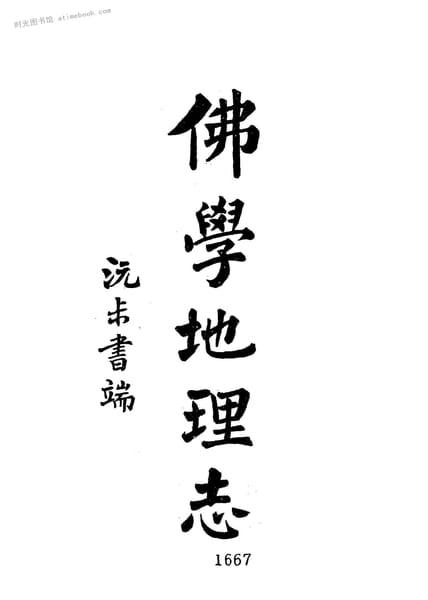 时光图书馆 atimebook.com
佛學地理志
沅尗書端
1667